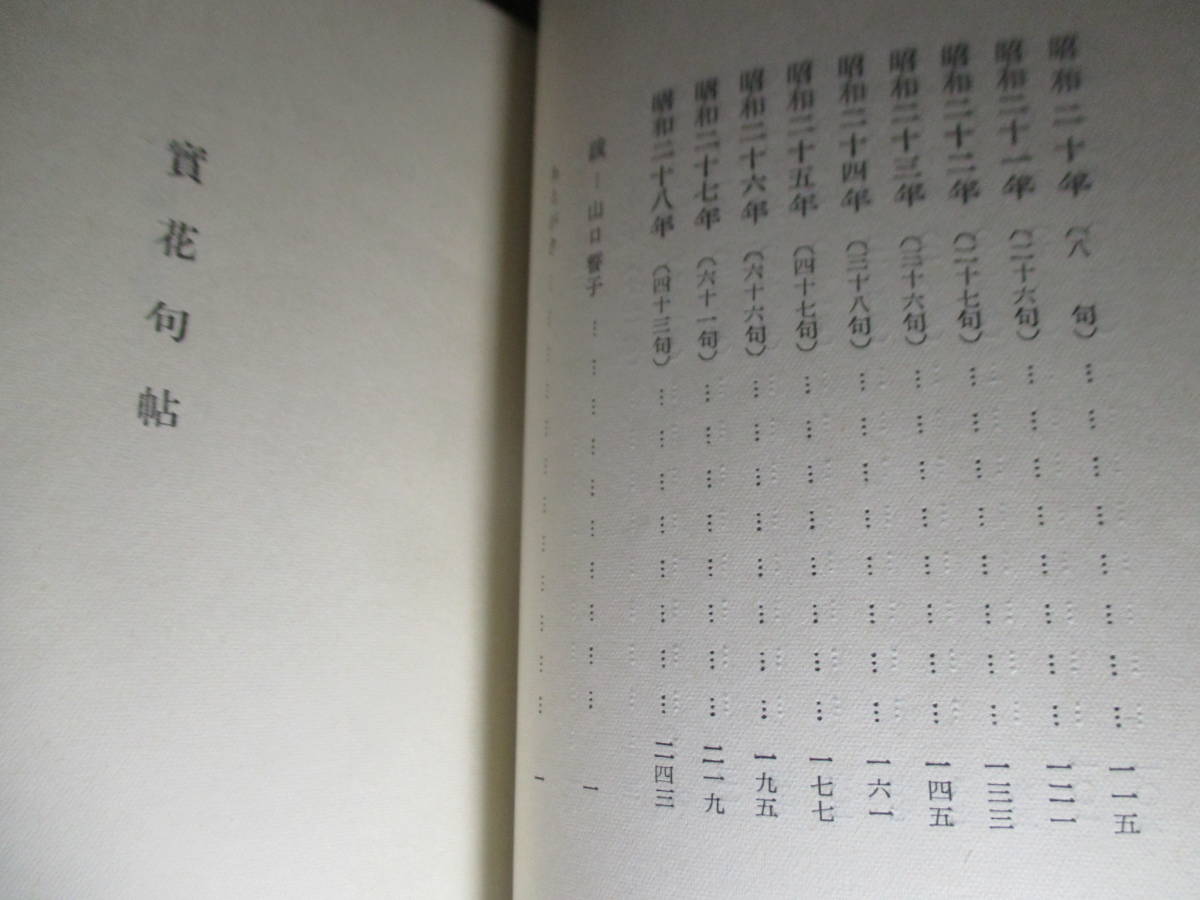 昭和二十年（八　句）………………………一一五
昭和二十一年（二十六句）………………………一二一
昭和二十二年（二十七句）………………………一三三
昭和二十三年（三十六句）………………………一四五
昭和二十四年（三十八句）………………………一六一
昭和二十五年（四十七句）………………………一七七
昭和二十六年（六十六句）………………………一九五
昭和二十七年（六十一句）………………………二一九
昭和二十八年（四十三句）………………………二四三
跋―山口誓子………………………一
………………………一
實花句帖